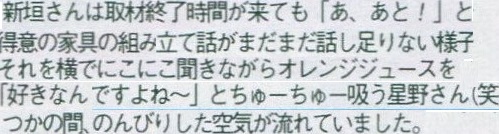 新垣さんは取材終了時間が来ても「あ、あと！」と
得意の家具の組み立て話がまだまだ話し足りない様子
それを横でにこにこ聞きながらオレンジジュースを
「好きなんですよね〜」とちゅーちゅー吸う星野さん(笑
つかの間、のんびりした空気が流れていました。